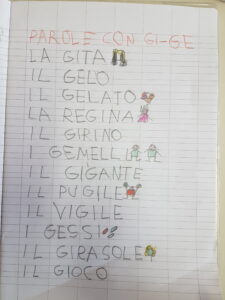 PAROLE CON GI-GE
LA GITA
IL GELO
IL GELATO
LA REGINA
IL GIRINO
I GEMELLI
IL GIGANTE
IL PUGILE
IL VIGILE
I GESSI
IL GIRASOLE
IL GIOCO